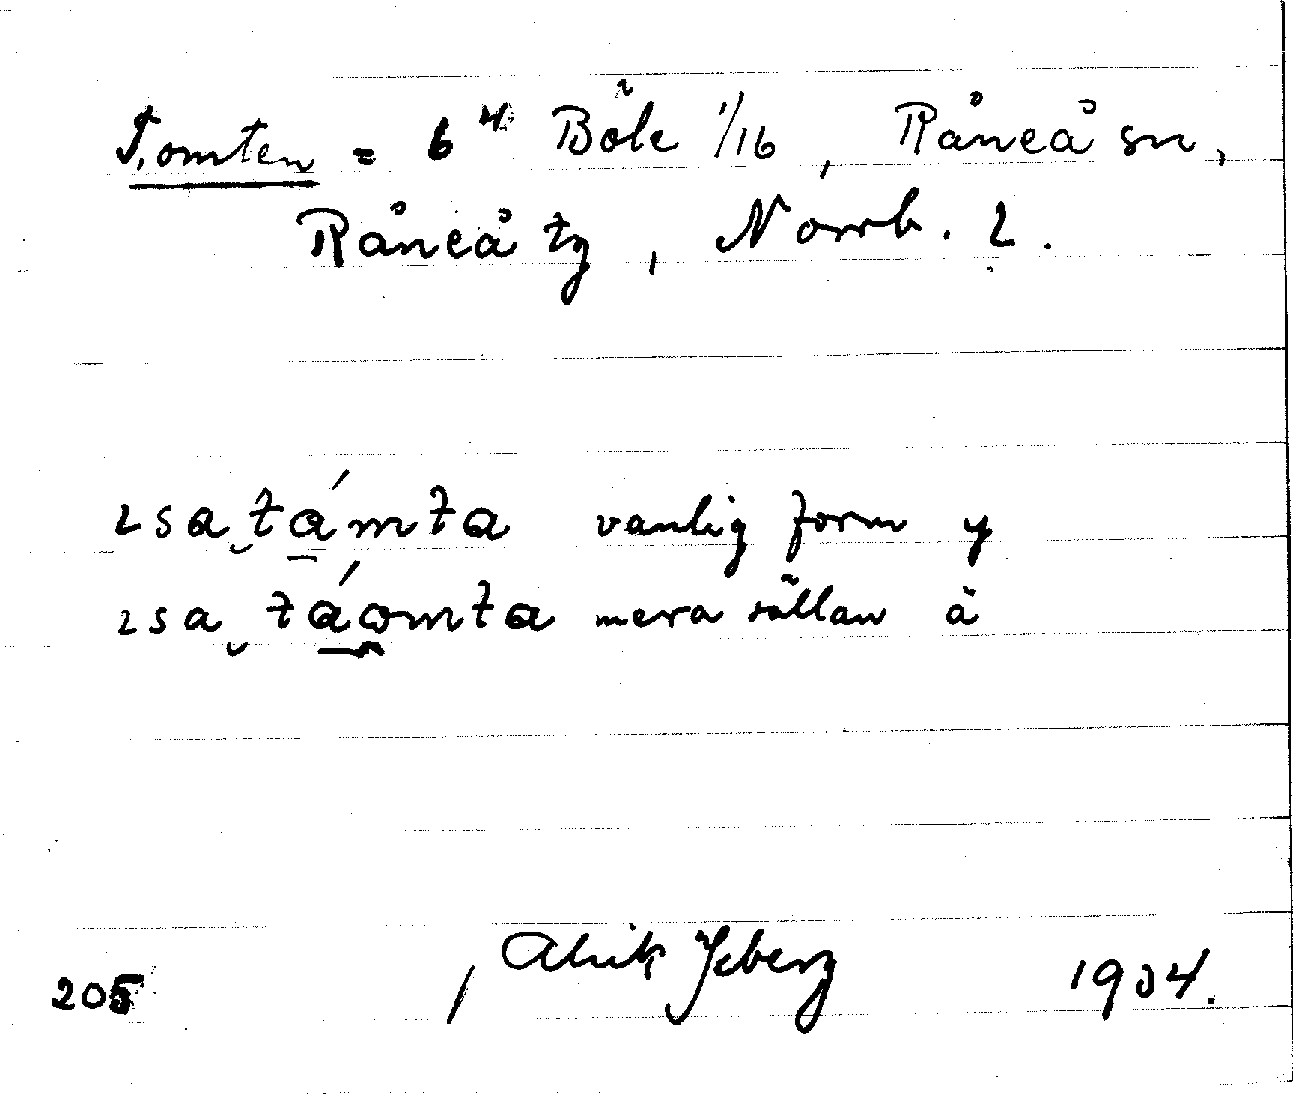 Tomten = 6⁴ Böle 1/16, Råneå sn,
Råneå tg, Norrb. l.
ɩsa támta vanlig form y
ɩsa táomta mera sällan å
205 / Alrik Ysberg 1934.